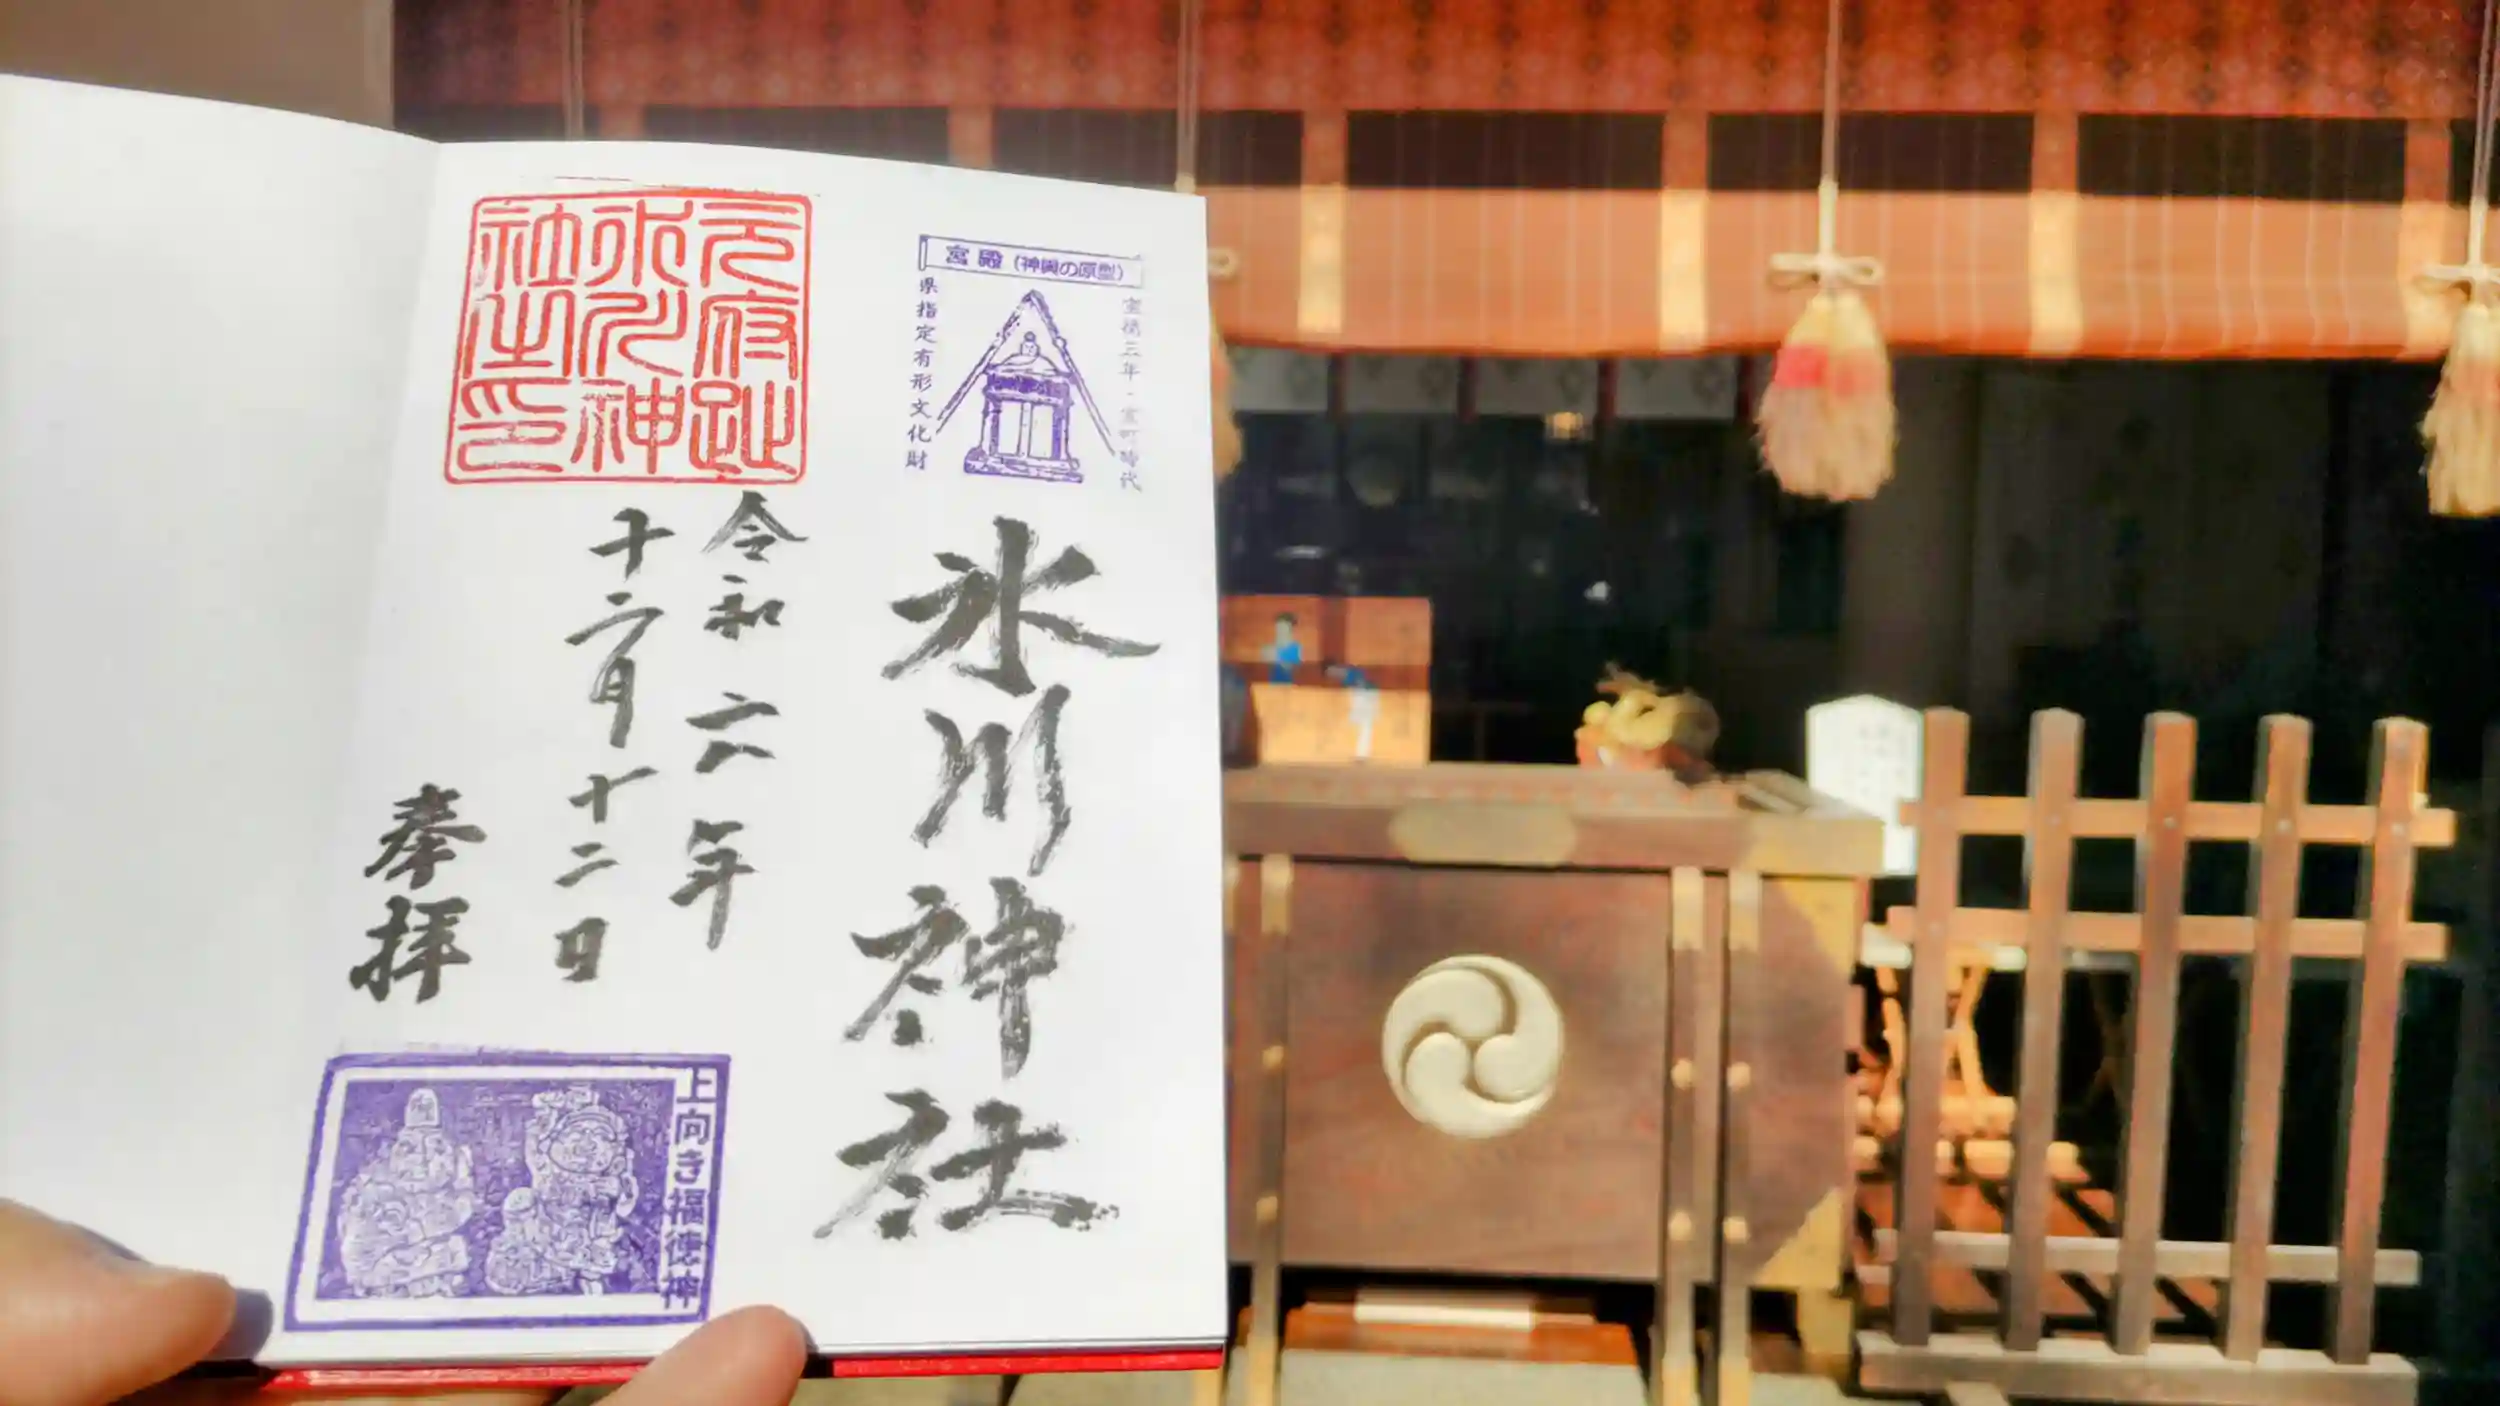 宮殿（神輿の原型）
宝徳三年・室町時代
県指定有形文化財
氷川神社
元府趾
氷川神
社之印
令和六年
十二月十二日
奉拝
上向き福徳神